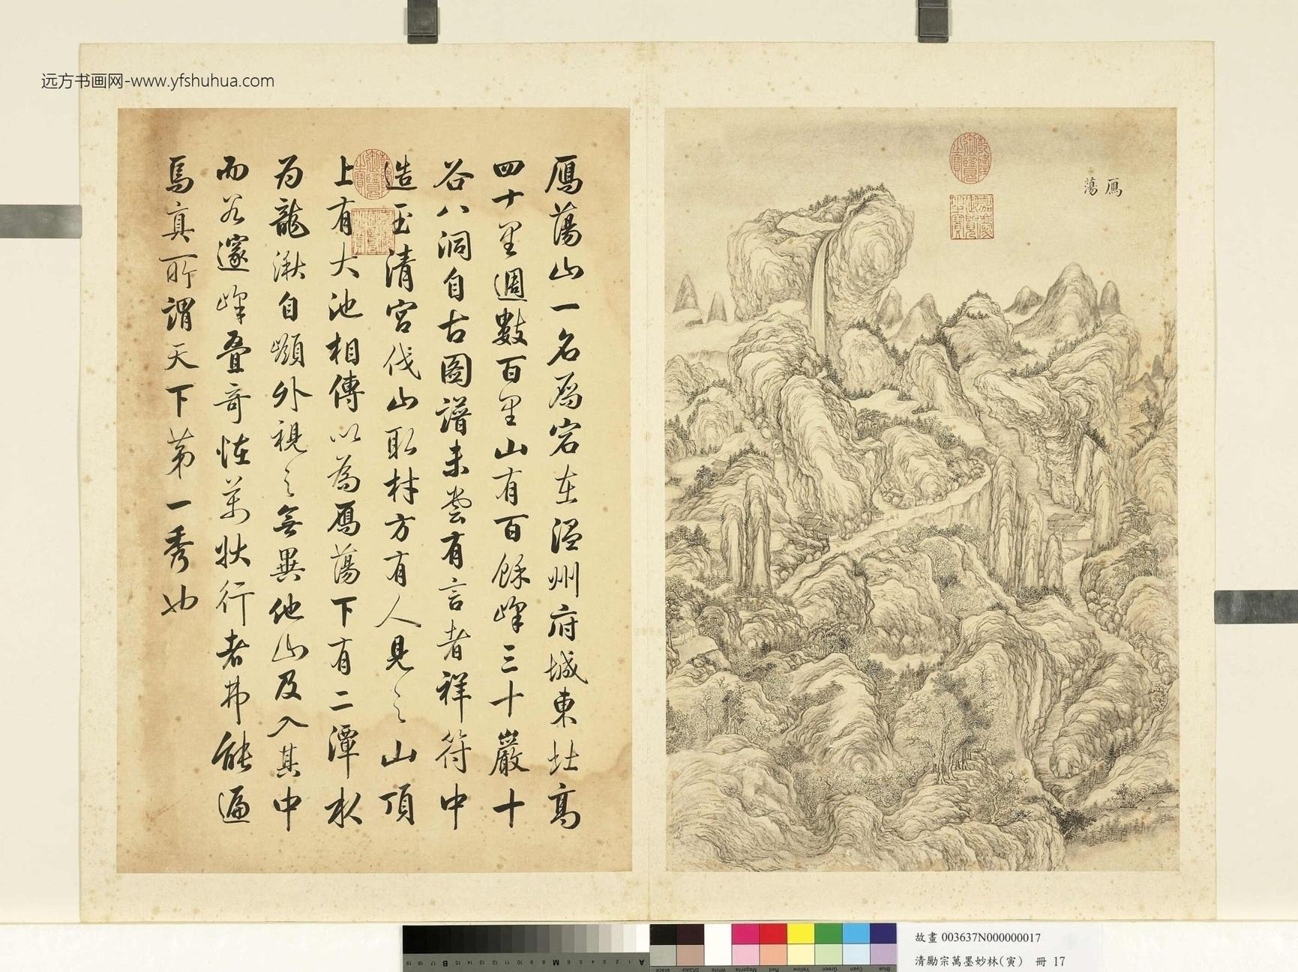 远方书画网-www.yfshuhua.com
雁蕩
鴈蕩山一名鴈宕在溫州府城東北高
四十里週數百里山有百餘峰三十巖十
谷八洞自古圖譜未嘗有言者祥符中
造玉清宮伐山取材方有人見之山頂
上有大池相傳以為鴈蕩下有二潭以
為龍湫自嶺外視之無異他山及入其中
而谷邃峰疊奇怪萬狀行者弗能遍
焉真所謂天下第一秀也
故畫 003637N000000017
清勵宗萬墨妙林(寅) 冊 17